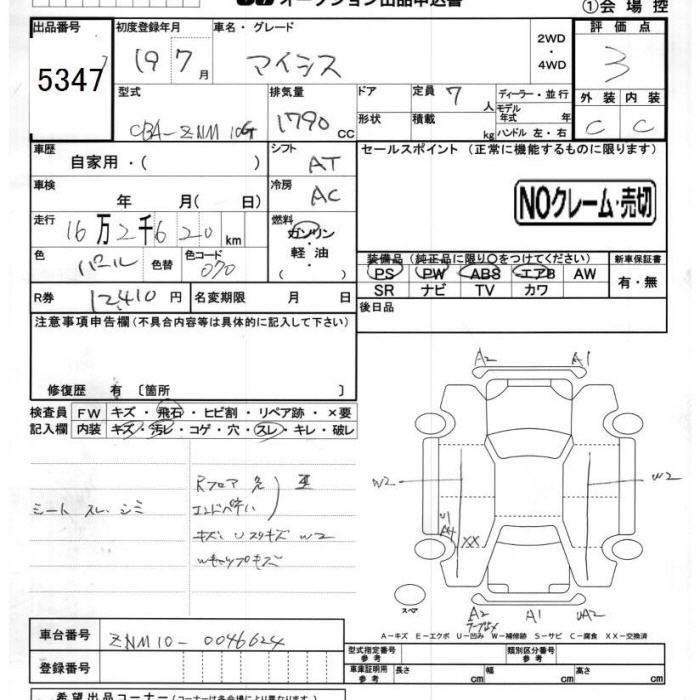 オークション出品申込書
①会場控
出品番号
5347
初度登録年月
19 7月
車名・グレード
アイシス
2WD
・
4WD
評価点
3
型式
CBA-ZNM10G
排気量
1790 CC
ドア
形状
定員 7 人
積載 kg
ディーラー・並行
モデル年式 年
ハンドル 左・右
外装 内装
C C
車歴
自家用・( )
シフト
AT
セールスポイント (正常に機能するものに限ります)
NOクレーム・売切
車検
年 月( 日)
冷房
AC
走行
16万2千620km
燃料
ガソリン
軽油
( ・ )
色
パール
色替
色コード
070
装備品 (純正品に限り○をつけてください)
新車保証書
PS PW ABS エアB AW
SR ナビ TV カワ
有・無
R券
12410円
名変期限 月 日
後日品
注意事項申告欄(不具合内容等は具体的に記入して下さい)
修復歴 有 〔箇所 〕
検査員
記入欄
FW キズ・飛石・ヒビ割・リペア跡・×要
内装 キズ・汚レ・コゲ・穴・スレ・キレ・破レ
シート スレ、シミ
Rフロア
エンドペ
キズ、Uスリキズ W2
A2 A1
W2 W2
U1
A4
XX
スペア
A2 A1 UA2
A-キズ E-エクボ U-凹み W-補修跡 S-サビ C-腐食 XX-交換済
車台番号
ZNM10-0046624
登録番号
型式指定番号
参考
類別区分番号
参考
車庫証明用
参考
長さ cm 幅 cm 高さ cm
希望出品コーナー